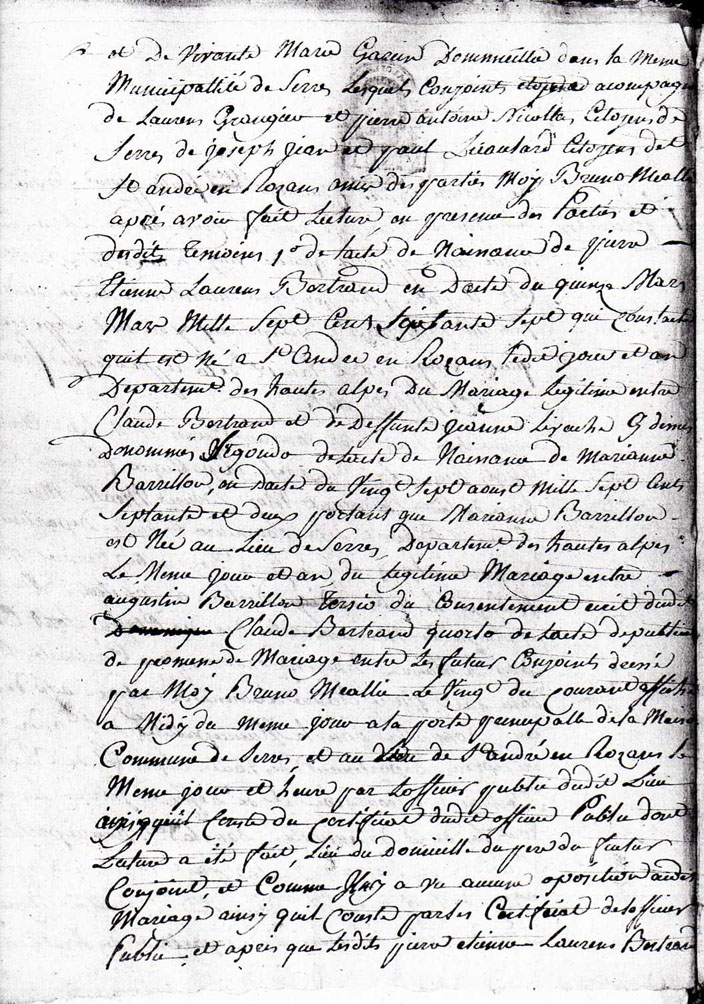 et de vivante Marie Gaseur Dommeille dans la meme
Municipallité de Serres Lesquels Conjoints acompagn
de Laurens Grangier et pierre antoine Nicollas Citoyens de
Serres de joseph jean et paul Lieoutard Citoyens de
St andré en Rozans amis des parties Moy Bruno Meallie
aprés avoir fait Lecture en presence des Parties et
desdits temoins 1° de lacte de Naisance de pierre
Etienne Laurens Bertrand en Datte du quinze Mars
Mars Mille Sept Cent Soissante Sept qui Constate
quil est Né a St Andre en Rozans ledit jour et an
Departemt. des hautes alpes Du Mariage Legitime entre
Claude Bertrand et de Deffunte jeanne
Denommés Segondo de lacte de Naisance de Marianne
Barrillon, en Datte du Vingt Sept aoust Mille Sept Cents
Septante et deux portant que Marianne Barrillon
est Née au Lieu de Serres Departemt. des hautes alpes
Le Meme jour et an du Legitime Mariage entre
augustin Barrillon Tersio du Consentement ecrit dudit
Dominique Claude Bertrand quarto de Lacte de publica
de promesse de Mariage entre Les futurs Conjoints dressé
par Moy Bruno Meallie Le Vingt du courant affiché
a Midy du meme jour a la porte principalle de la Maison
Commune de Serres et au Lieu de St andré en Rozans le
Meme jour et heure par Lofficier public dudit Lieu
ainsy quil Conste du Certificat dudit officier Public dont
Lecture a été fait, Lieu du Domicille du pere du futur
Conjoint, et Comme Il ny a eu aucune oposition audit
Mariage ainsy quil Conste par les Certificat de lofficier
Public et apres que Lesdits pierre etienne Laurens Bertrand